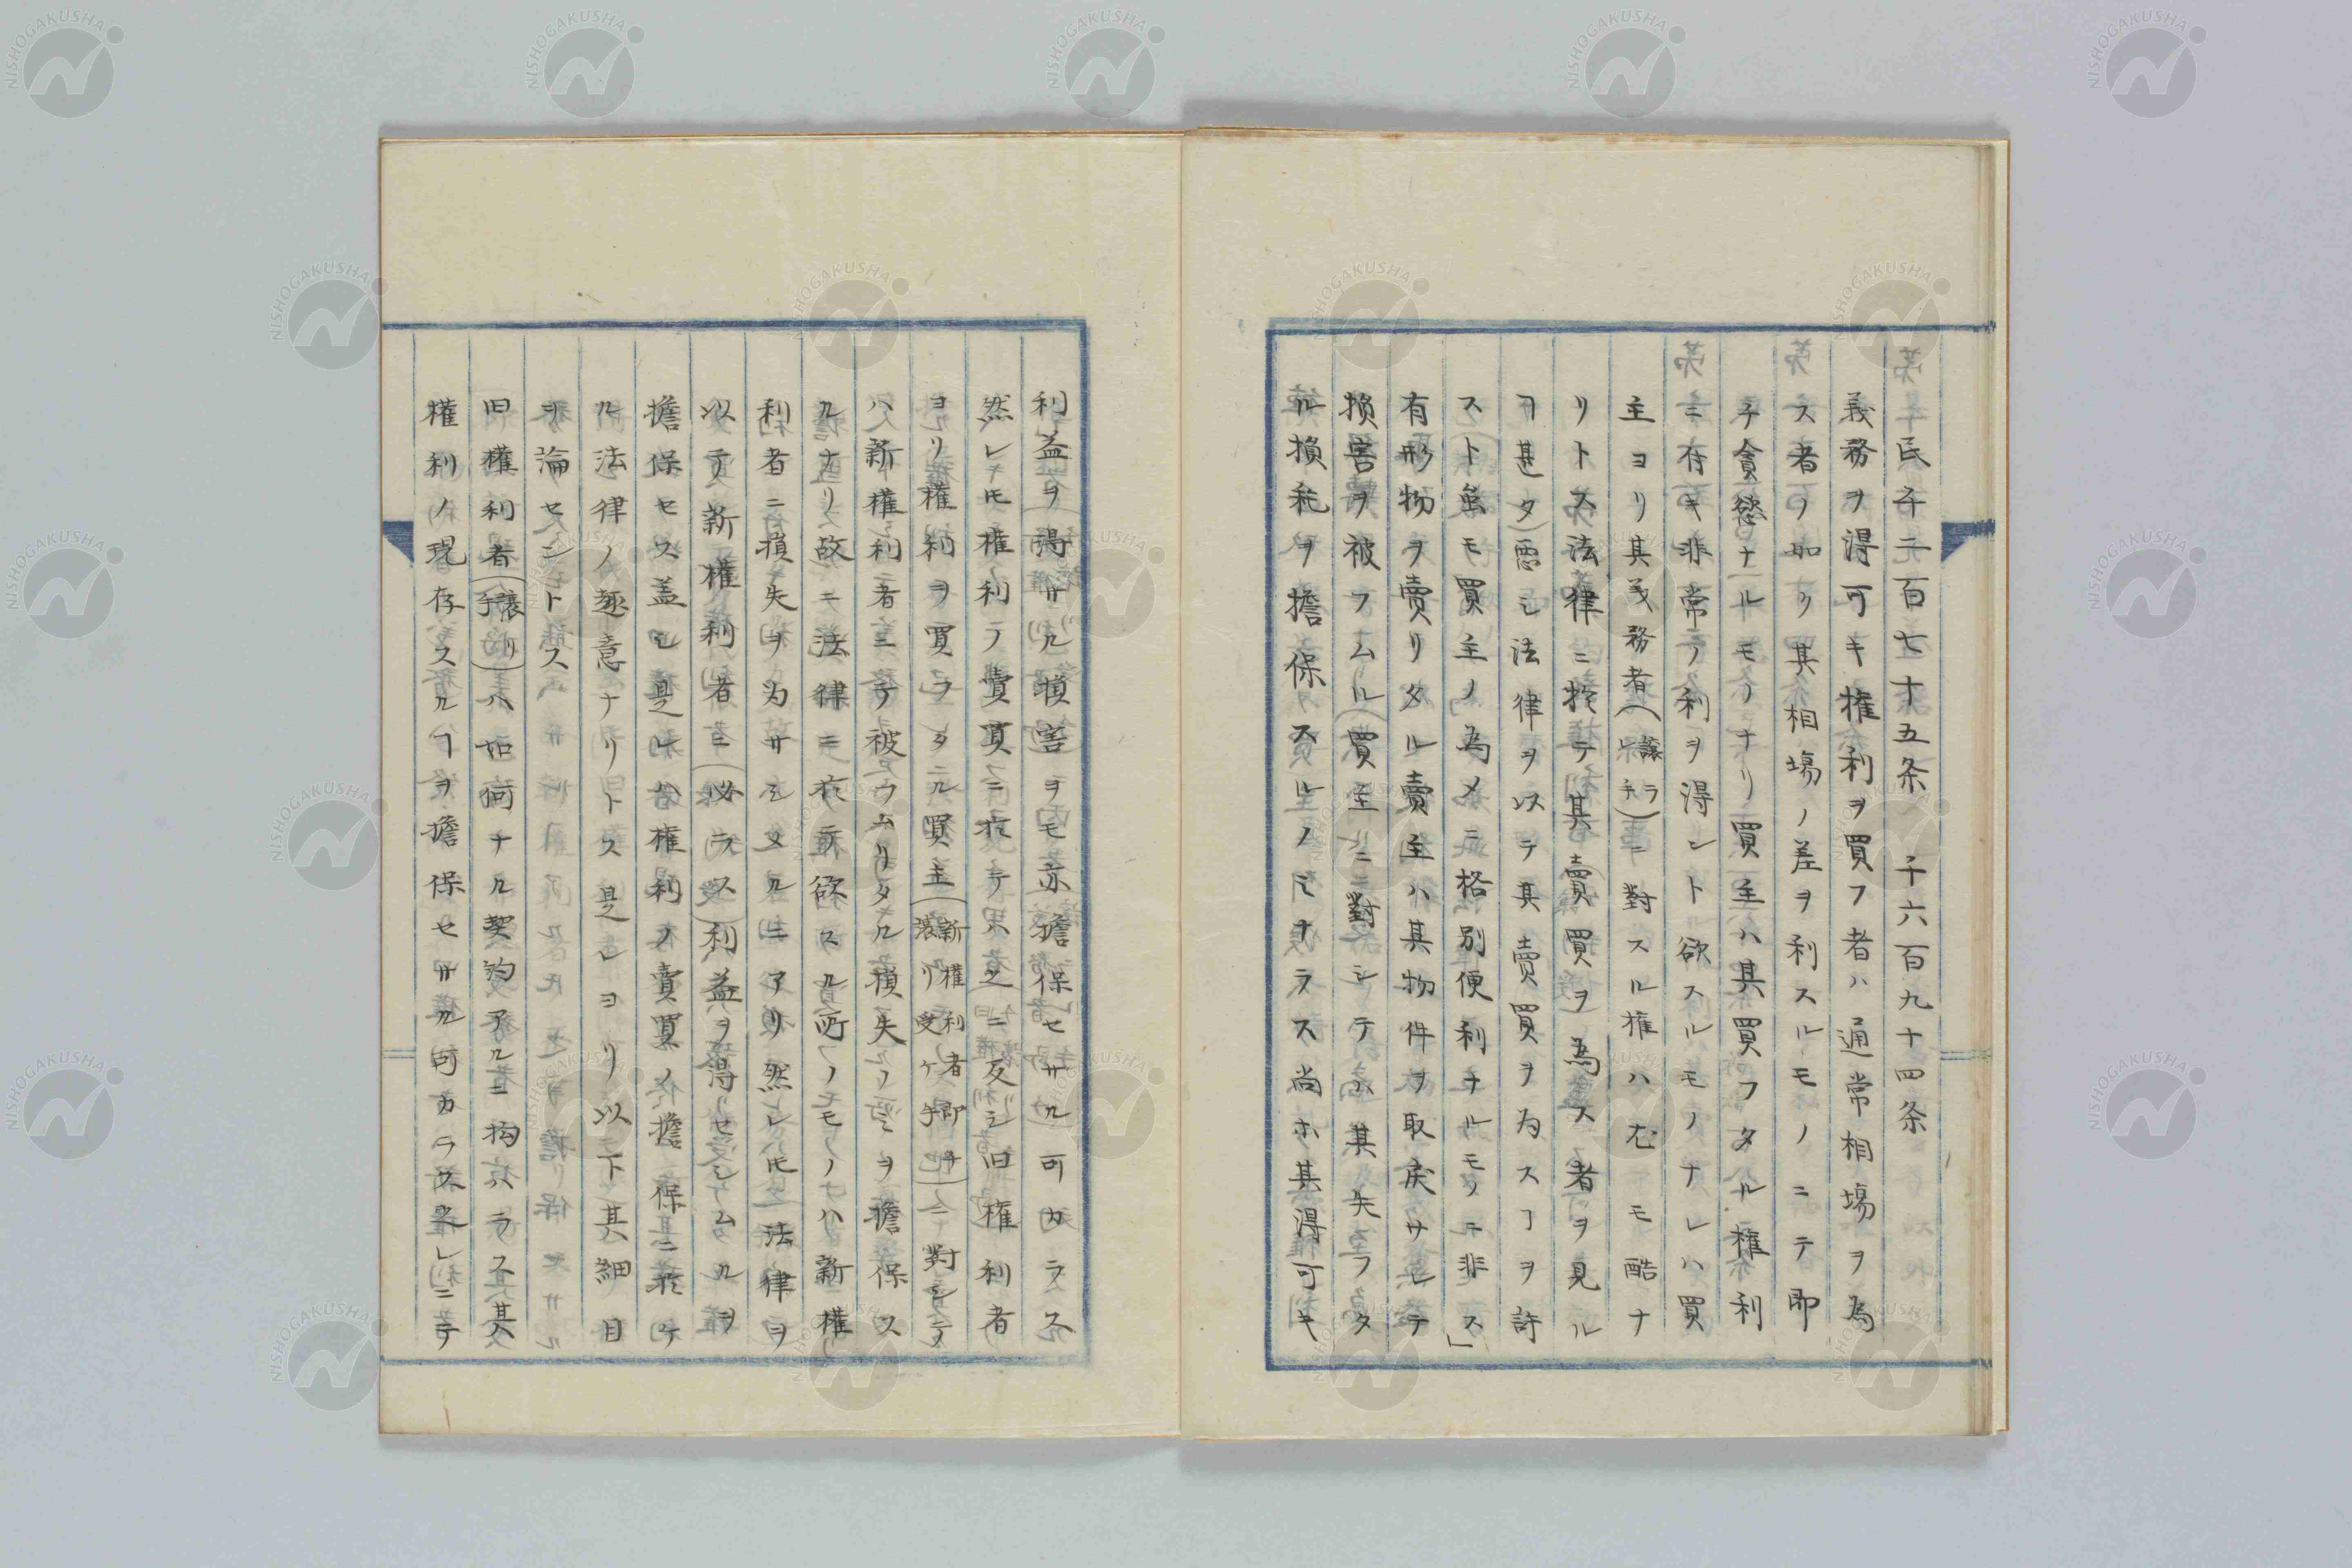 民千二百七十五条 千六百九十四条
義務ヲ得可キ権利ヲ買フ者ハ通常相場ヲ為
ス者ノ如ク其相場ノ差ヲ利スルモノニテ即
チ貪慾ナルモノナリ買主ハ其買フタル権利
ニ存キ非常ノ利ヲ得ント欲スルモノナレハ買
主ヨリ其義務者(譲ラレ手)ニ對スル権ハ尤モ酷ナ
リトス法律ニ於テ其賣買ヲ為ス者ヲ見ル
ヿ甚タ悪シ法律ヲ以テ其賣買ヲ為スヿヲ許
スト虽モ買主ノ為メニ格別便利ナルモノニ非ス」
有形物ヲ賣リタル賣主ハ其物件ヲ取戻サレテ
損害ヲ被フムル(買主)ニ對シテハ其失フタ
ル損耗ヲ擔保スルノミナラス尚ホ其得可キ
利益ヲ(得サル)損害ヲモ亦擔保セサル可カラス
然レ𪜈権利ノ賣買ニ於テ果之ニ反シ旧権利者
ヨリ権利ヲ買フタル買主(新権利者即チ譲リ受ケ手)ニ對シテ
ハ新権利者ニテ被ウムリタル損失ノミヲ擔保ス
ルナリ故ニ法律ニ於テ欲スル所ノモノハ新権
利者ニ損失ヲ为サシメタルニアリ然レ𪜈法律ヲ
以テ新権利者ニ(必ラス)利益ヲ得セシムルヲ
擔保セス蓋シ是レハ権利ノ賣買ノ擔保ニ於ケ
ル法律ノ趣意ナリトス是レヨリ以下其細目
ヲ論セントス
旧権利者(譲リ手)ハ如何ナル契約アルニ拘ハラス其
権利ノ現存スルヿヲ擔保セサル可カラス是レニテ